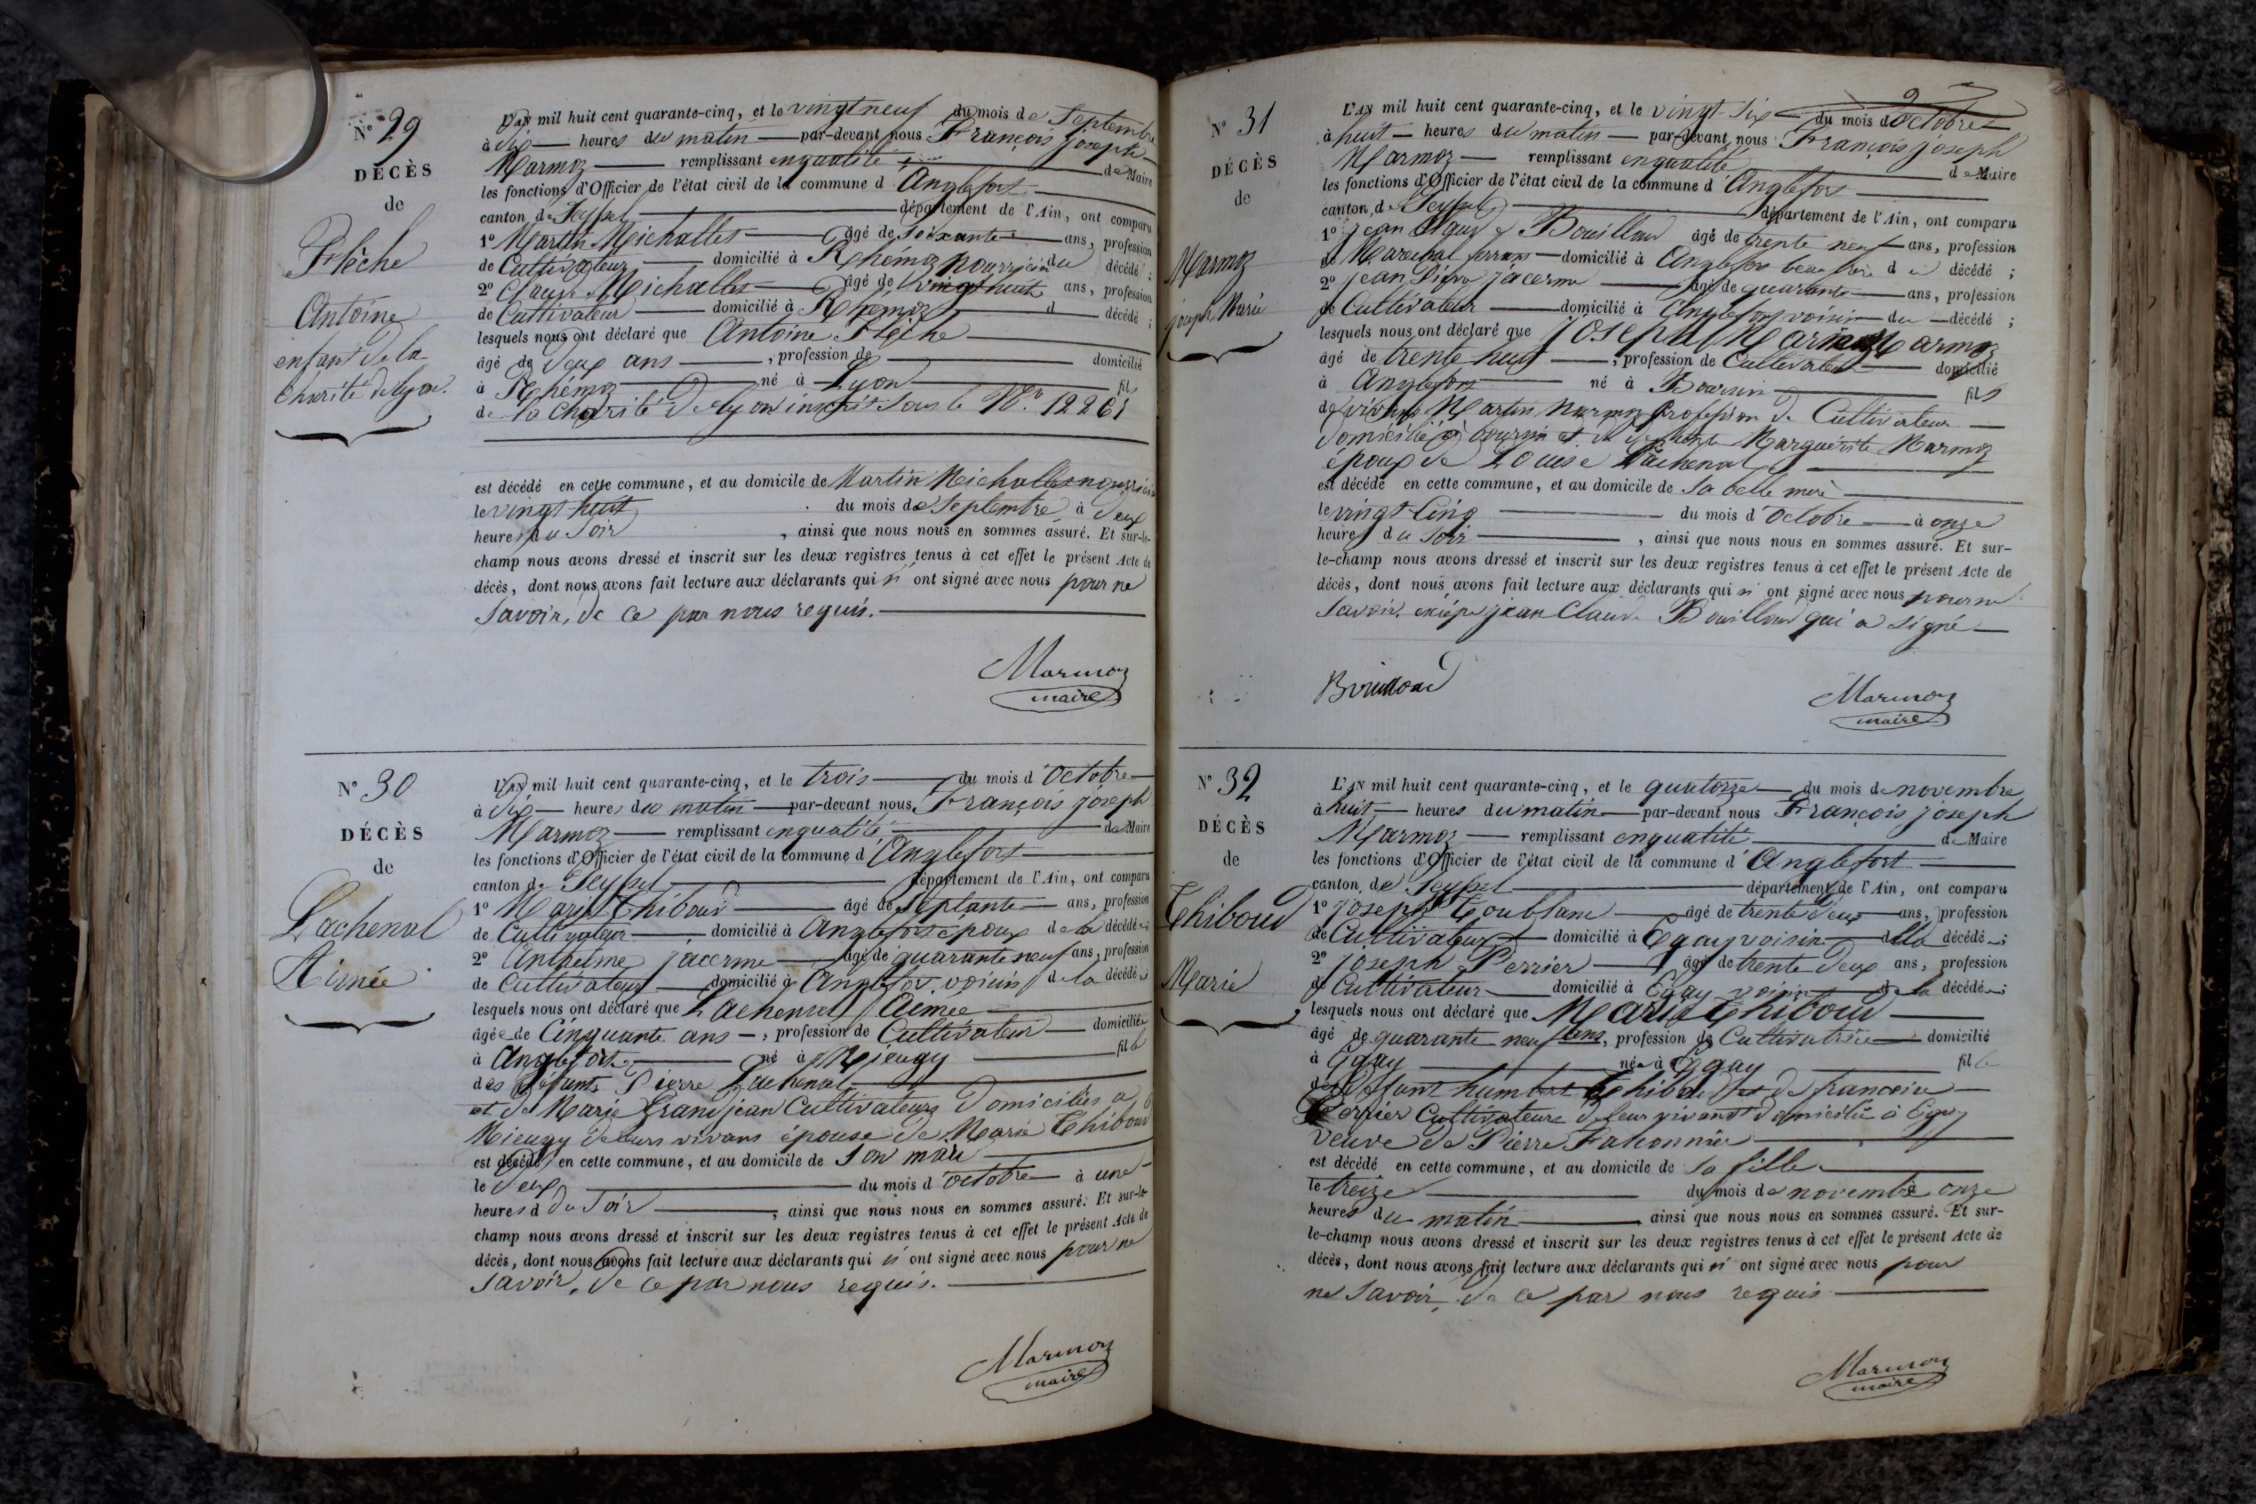 N° 29
DÉCÈS
de
Flèche
Antoine
enfant de la
Charité de Lyon.
L'AN mil huit cent quarante-cinq, et le vingt neuf du mois de Septembre
à dix heures du matin par-devant nous François joseph
Marmoz remplissant enqualité de Maire
les fonctions d'Officier de l'état civil de la commune d'Anglefort
canton de Seyssel département de l'Ain, ont comparu
1° Martin Michallet âgé de soixante ans, profession
de Cultivateur domicilié à Rhémoz nourricier du décédé ;
2° Claude Michallet âgé de vingt huit ans, profession
de Cultivateur domicilié à Rhémoz d décédé ;
lesquels nous ont déclaré que Antoine Flèche
âgé de deux ans , profession de domicilié
à Rhémoz né à Lyon fils
de la Charité de Lyon inscrit sous le N° 12261
est décédé en cette commune, et au domicile de Martin Michallet nourricier
le vingt huit du mois de Septembre à deux
heures du soir , ainsi que nous nous en sommes assuré. Et sur-le-
champ nous avons dressé et inscrit sur les deux registres tenus à cet effet le présent Acte de
décès, dont nous avons fait lecture aux déclarants qui n' ont signé avec nous pour ne
savoir, de ce par nous requis.
Marmoz
maire
N° 30
DÉCÈS
de
Lachenal
Aimée
L'AN mil huit cent quarante-cinq, et le trois du mois d'Octobre
à dix heures du matin par-devant nous François joseph
Marmoz remplissant enqualité de Maire
les fonctions d'Officier de l'état civil de la commune d'Anglefort
canton de Seyssel département de l'Ain, ont comparu
1° Marie Thiboud âgé de septante ans, profession
de Cultivateur domicilié à Anglefort époux de la décédée
2° Anthelme jacerme âgé de quarante neuf ans, profession
de Cultivateur domicilié à Anglefort voisin de la décédée
lesquels nous ont déclaré que Lachenal Aimée
âgée de Cinquante ans , profession de Cultivateur domiciliée
à Anglefort né à Mieugy fille
des défunts Pierre Lachenal
et de Marie Grandjean Cultivateurs domiciliés à
Mieugy de leurs vivans épouse de Marie Thiboud
est décédé en cette commune, et au domicile de son mari
le deux du mois d'octobre à une
heures d du soir , ainsi que nous nous en sommes assuré. Et sur-le-
champ nous avons dressé et inscrit sur les deux registres tenus à cet effet le présent Acte de
décès, dont nous avons fait lecture aux déclarants qui n' ont signé avec nous pour ne
savoir, de ce par nous requis.
Marmoz
maire
N° 31
DÉCÈS
de
Marmoz
joseph Marie
L'AN mil huit cent quarante-cinq, et le vingt-six du mois d'Octobre
à huit heures du matin par-devant nous François joseph
Marmoz remplissant enqualité de Maire
les fonctions d'Officier de l'état civil de la commune d'Anglefort
canton de Seyssel département de l'Ain, ont comparu
1° jean Claude Bouilloud âgé de trente neuf ans, profession
de Marechal ferrant domicilié à Anglefort beau frère du décédé ;
2° jean Pierre jacerme âgé de quarante ans, profession
de Cultivateur domicilié à Anglefort voisin du décédé ;
lesquels nous ont déclaré que joseph Marie Marmoz
âgé de trente huit , profession de Cultivateur domicilié
à Anglefort né à Boursin fils
de vivant Martin Marmoz profession de Cultivateur
domicilié à boursin et de Marguerite Marmoz
époux de Louise Lachenal
est décédé en cette commune, et au domicile de sa belle mère
le vingt Cinq du mois d'octobre à onze
heures du soir , ainsi que nous nous en sommes assuré. Et sur-
le-champ nous avons dressé et inscrit sur les deux registres tenus à cet effet le présent Acte de
décès, dont nous avons fait lecture aux déclarants qui n' ont signé avec nous pour ne
savoir, excépé jean Claude Bouilloud qui a signé
Bouilloud
Marmoz
maire
N° 32
DÉCÈS
de
Thiboud
Marie
L'AN mil huit cent quarante-cinq, et le quatorze du mois de novembre
à huit heures du matin par-devant nous François joseph
Marmoz remplissant enqualité de Maire
les fonctions d'Officier de l'état civil de la commune d'Anglefort
canton de Seyssel département de l'Ain, ont comparu
1° joseph Goublanc âgé de trente deux ans, profession
de Cultivateur domicilié à Egay voisin d la décédée ;
2° joseph Perrier âgé de trente deux ans, profession
de Cultivateur domicilié à Egay voisin de la décédée ;
lesquels nous ont déclaré que Marie Thiboud
âgé de quarante neuf ans, profession de Cultivatrice domicilié
à Egay née à Egay fille
de deffunt humbert Thiboud et de francoise
Perrier Cultivateurs de leur vivant domicilié à Egay
veuve de Pierre
est décédé en cette commune, et au domicile de sa fille
le treize du mois de novembre à onze
heures du matin , ainsi que nous nous en sommes assuré. Et sur-
le-champ nous avons dressé et inscrit sur les deux registres tenus à cet effet le présent Acte de
décès, dont nous avons fait lecture aux déclarants qui n' ont signé avec nous pour
ne savoir, de ce par nous requis
Marmoz
maire